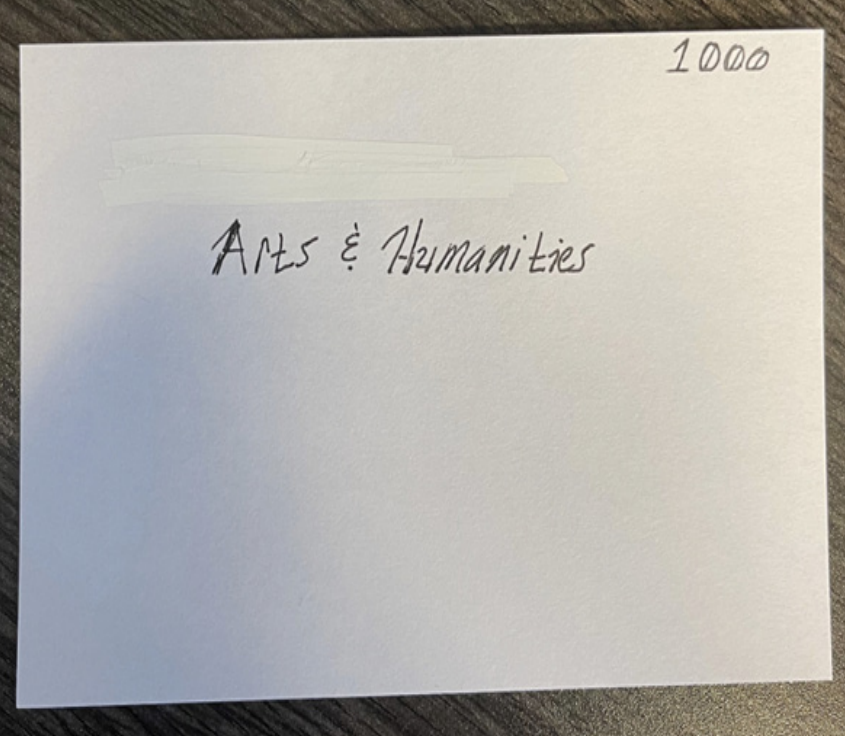 1000
Arts & Humanities